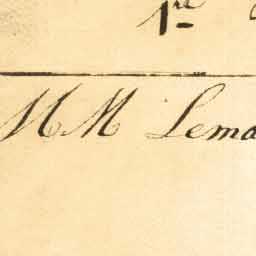 1re
MM Lema